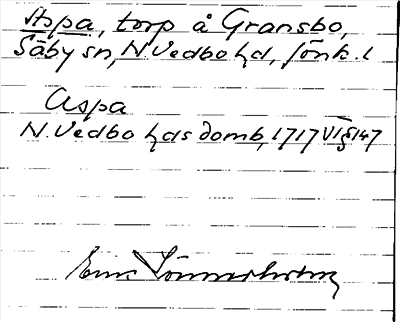 Aspa, torp å Gransbo,
Säby sn, N Vedbo hd, Jönk. l
Aspa
N. Vedbo hds domb, 1717 VI § 147